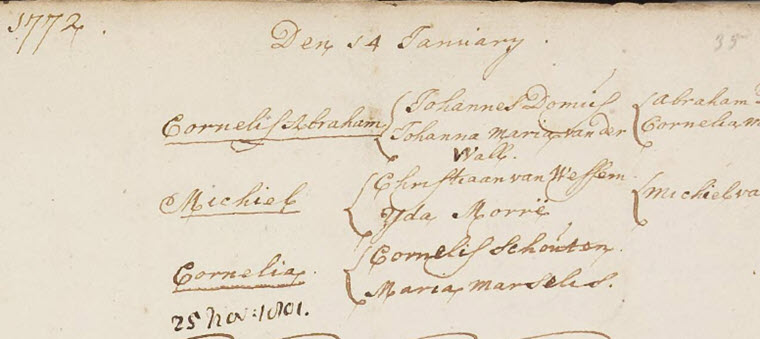 1772.
Den 14 January.
35
Cornelis Abraham { Johannes Domus { Abraham
Johanna Maria van der { Cornelia
Wall.
Michiel { Christiaan van Wessem { Michiel va
Yda Morrë
Cornelia. { Cornelis Schouten.
Maria Marselis.
25 Nov: 1801.